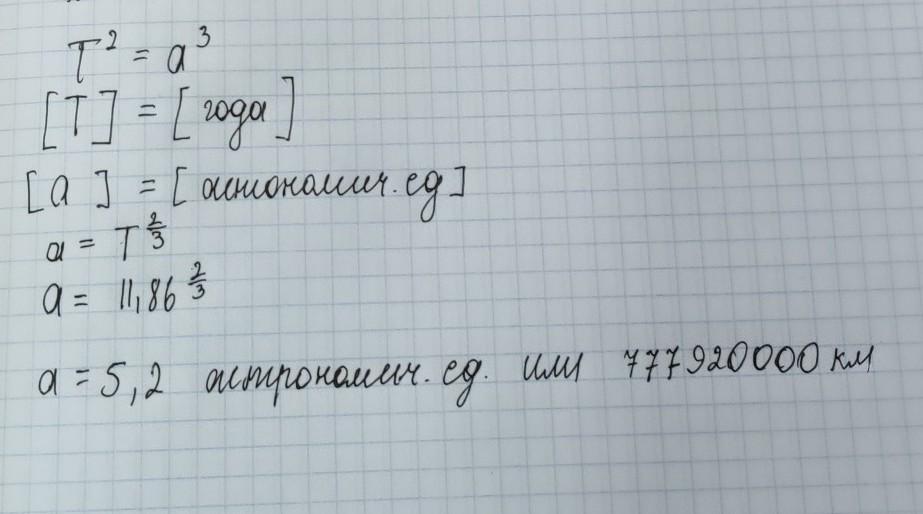 T² = a³
[T] = [года]
[a] = [астономич. ед]
a = T^(2/3)
a = 11,86^(2/3)
a = 5,2 астрономич. ед. или 777920000 км